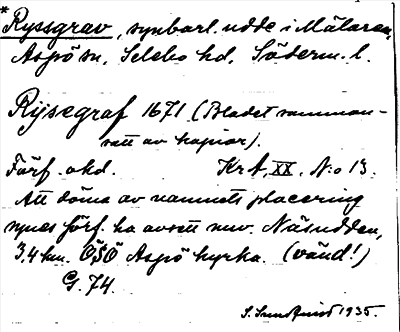 * Ryssgrav, synbarl. udde i Mälaren,
Aspö sn, Selebo hd, Söderm. l.
Rÿsegraf 1671 (Bladet samman-
satt av kopior).
Förf. okd. KrA, XX. N:o 13.
Att döma av namnets placering
synes förf. ha avsett nuv. Näsudden,
3,4 km. ÖSÖ Aspö kyrka. (vänd!)
G. 74.
1935.